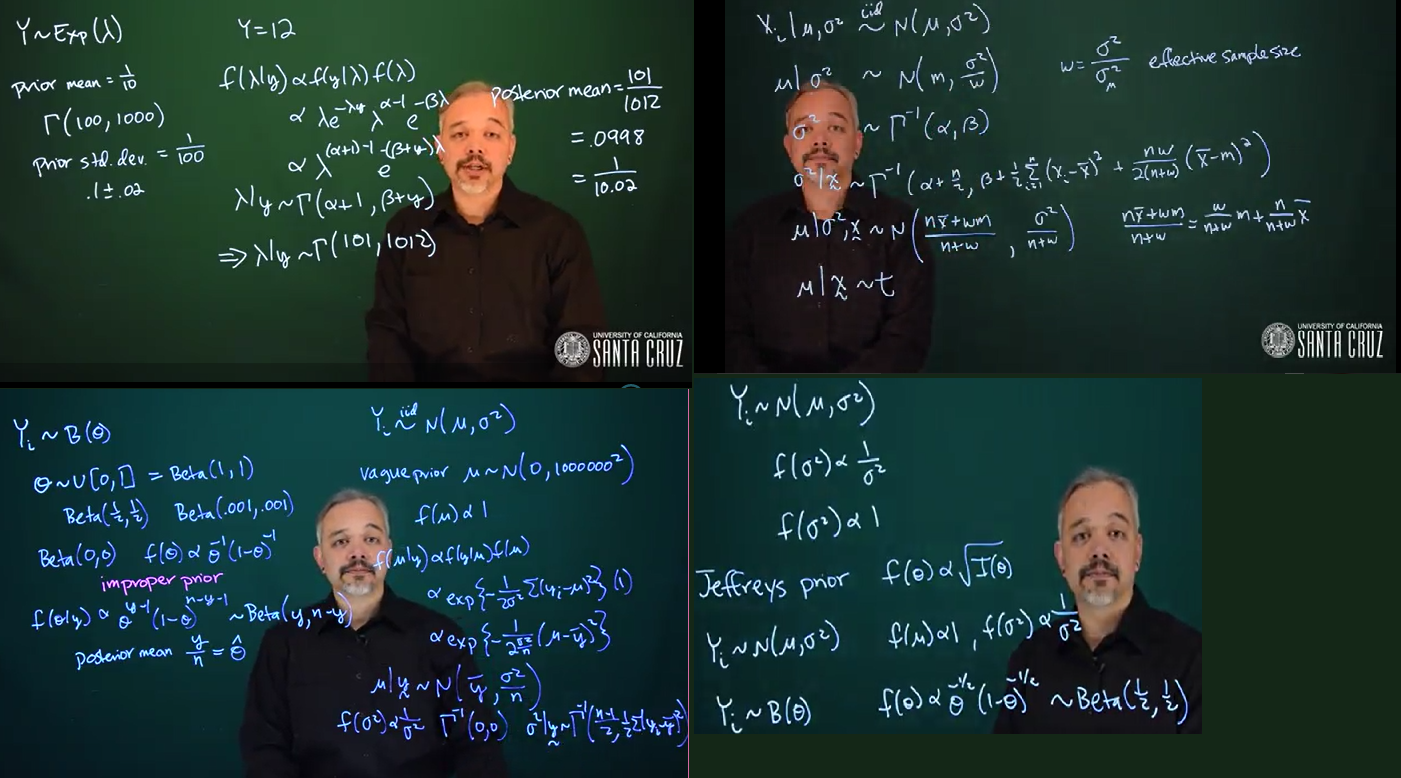 Y ~ Exp(λ)
prior mean = 1/10
Γ(100, 1000)
prior std. dev. = 1/100
.1 ± .02
Y = 12
f(λ|y) ∝ f(y|λ) f(λ)
∝ λe^(-λy) λ^(α-1) e^(-βλ)
∝ λ^((α+1)-1) e^(-(β+y)λ)
λ|y ~ Γ(α+1, β+y)
⇒ λ|y ~ Γ(101, 1012)
posterior mean = 101/1012
= .0998
= 1/10.02
UNIVERSITY OF CALIFORNIA
SANTA CRUZ
X_i | μ, σ² iid ~ N(μ, σ²)
μ | σ² ~ N(m, σ²/w)
w = σ²/σ_μ² effective sample size
σ² ~ Γ⁻¹(α, β)
σ² | x ~ Γ⁻¹(α + n/2, β + 1/2 Σ_(i=1)^n (x_i - x̄)² + nw/(2(n+w)) (x̄ - m)²)
μ | σ², x ~ N((nx̄ + wm)/(n+w), σ²/(n+w))
(nx̄ + wm)/(n+w) = w/(n+w) m + n/(n+w) x̄
μ | x ~ t
UNIVERSITY OF CALIFORNIA
SANTA CRUZ
Y_i ~ B(θ)
θ ~ U[0,1] = Beta(1,1)
Beta(1/2, 1/2) Beta(.001, .001)
Beta(0,0) f(θ) ∝ θ⁻¹(1-θ)⁻¹
improper prior
f(θ|y) ∝ θ^(y-1) (1-θ)^(n-y-1) ~ Beta(y, n-y)
posterior mean y/n = θ̂
Y_i iid ~ N(μ, σ²)
vague prior μ ~ N(0, 1000000²)
f(μ) ∝ 1
f(μ|y) ∝ f(y|μ) f(μ)
∝ exp{-1/(2σ²) Σ(y_i - μ)²} (1)
∝ exp{-1/(2σ²/n) (μ - ȳ)²}
μ|y ~ N(ȳ, σ²/n)
f(σ²) ∝ 1/σ² Γ⁻¹(0,0) σ²|y ~ Γ⁻¹((n-1)/2, 1/2 Σ(y_i - ȳ)²)
Y_i ~ N(μ, σ²)
f(σ²) ∝ 1/σ²
f(σ²) ∝ 1
Jeffreys prior f(θ) ∝ √I(θ)
Y_i ~ N(μ, σ²) f(μ) ∝ 1, f(σ²) ∝ 1/σ²
Y_i ~ B(θ) f(θ) ∝ θ^(-1/2) (1-θ)^(-1/2) ~ Beta(1/2, 1/2)